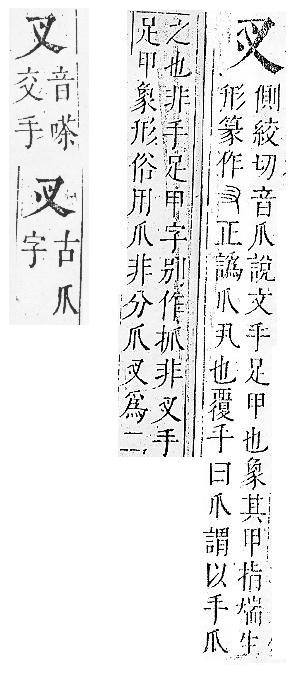 㕚
側絞切音爪說文手足甲也象其甲指端生
形篆作正譌爪丮也覆手曰爪謂以手爪
之也非手足甲字別作抓非㕚手
足甲象形俗用爪非分爪㕚為二
叉
音嗏
交手
㕚
古爪
字